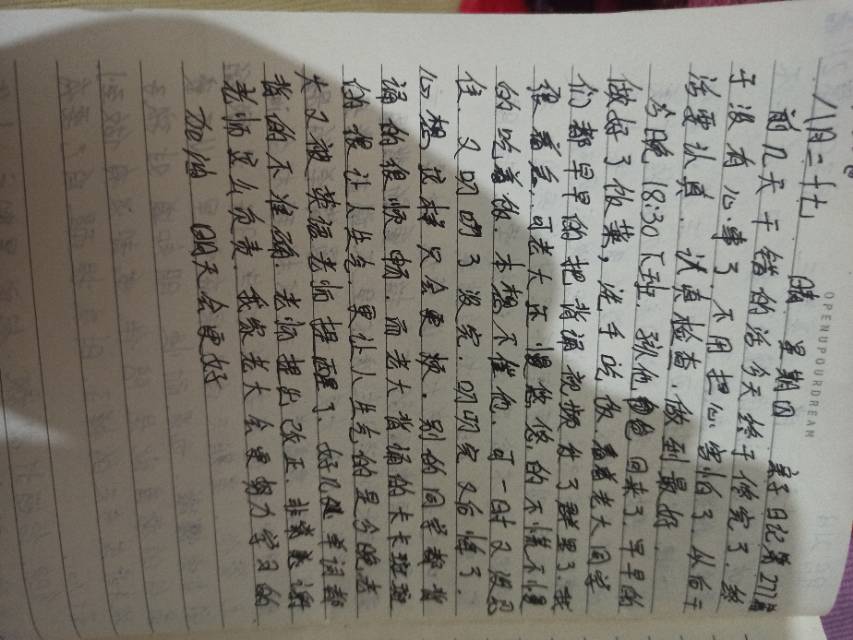 OPENUPOURDREAM
八月二十七 晴 星期四 亲子日记第277篇
前几天干错的活今天终于做完了,终
于没有心事了,不用担心害怕了,以后干
活要认真,认真检查,做到最好.
今晚18:30下班,到他爸爸回来了,早早的
做好了饭菜,洗手吃饭,看着老大同学
们都早早的把背诵视频发了群里了,我
很着急,可老大还慢悠悠的不慌不慢
的吃着饭,本想不催他,可一时又没忍
住,又叨叨了没完,叨叨完又后悔了.
心想这样只会更烦,别的同学都背
诵的很顺畅,而老大背诵的卡卡
的,很让人生气,更让人生气的是今晚老
大又被英语老师提醒了,好几处单词都
背的不准确,老师提出改正,非常感谢
老师这么负责,我家老大会更努力学习的
加油 明天会更好